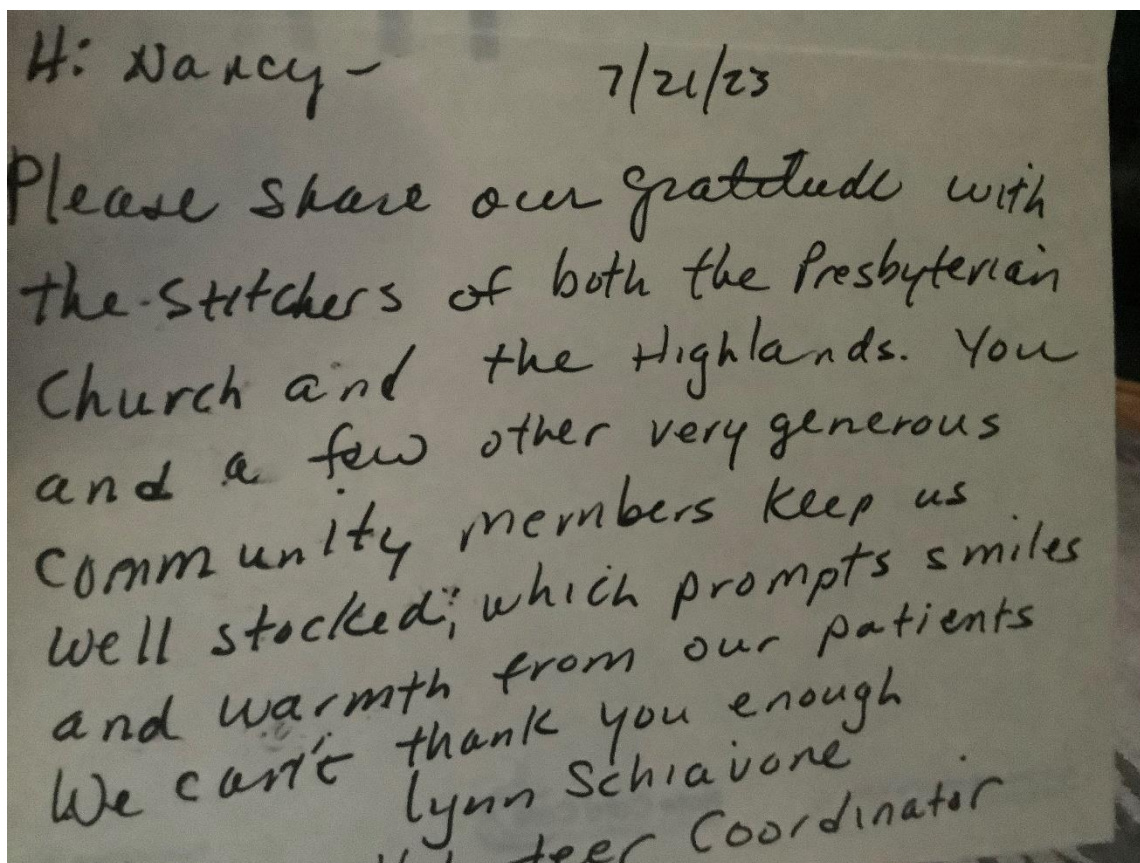 Hi Nancy - 7/21/23
Please share our gratitude with
the stitchers of both the Presbyterian
Church and the Highlands. You
and a few other very generous
community members keep us
well stocked; which prompts smiles
and warmth from our patients
We can't thank you enough
Lynn Schiavone
Coordinator